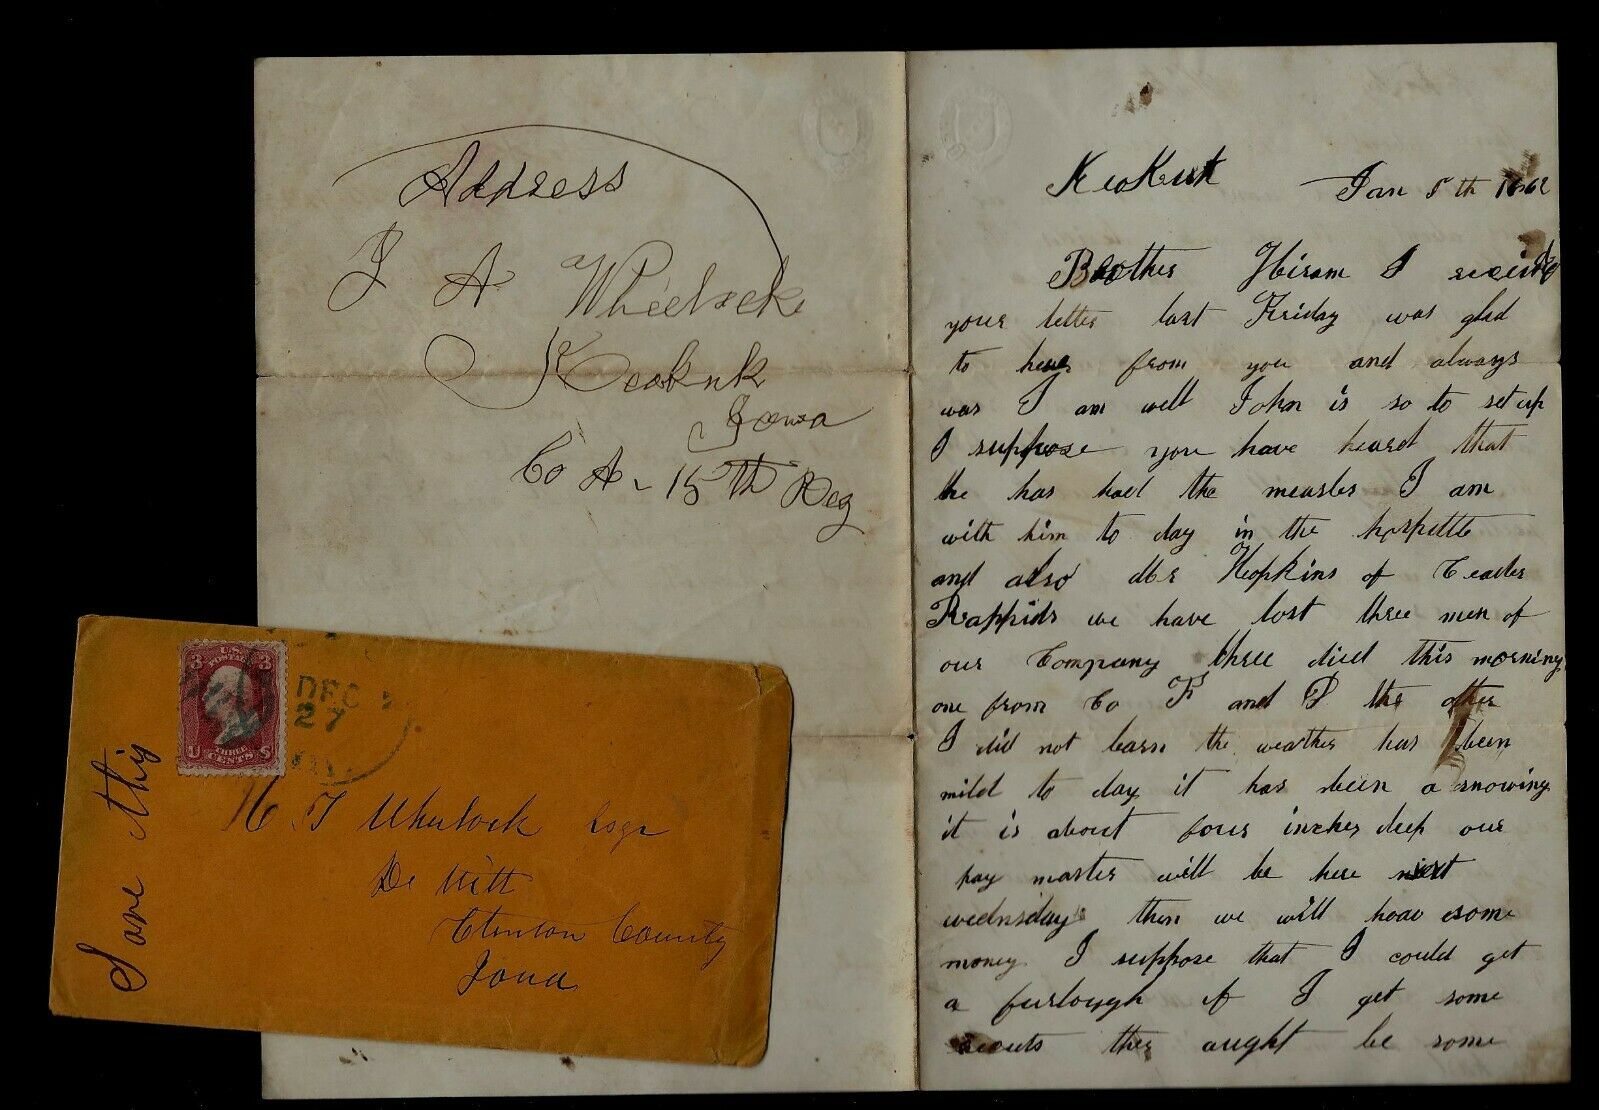 Address
J A Wheelock
Keokuk
Iowa
Co A - 15th Reg
Keokuk Jan 5th 1862
Brother Hiram I
your letter last Friday was glad
to hear from you and always
was I am well John is so to set up
I suppose you have heard that
he has had the measles I am
with him to day in the hospittle
and also Mr Hopkins of Ceader
Rappids we have lost three men of
our Company three died this morning
one from Co F and D the other
I did not learn the weather has been
mild to day it has been a snowing
it is about four inches deep our
pay master will be here next
wednsday then we will have some
money I suppose that I could get
a furlough if I get some
ther aught be some
Save this
U.S. POSTAGE
3 3
THREE
CENTS
U S
DEC
27
H T Wheelock Esqr
De Witt
Clinton County
Iowa